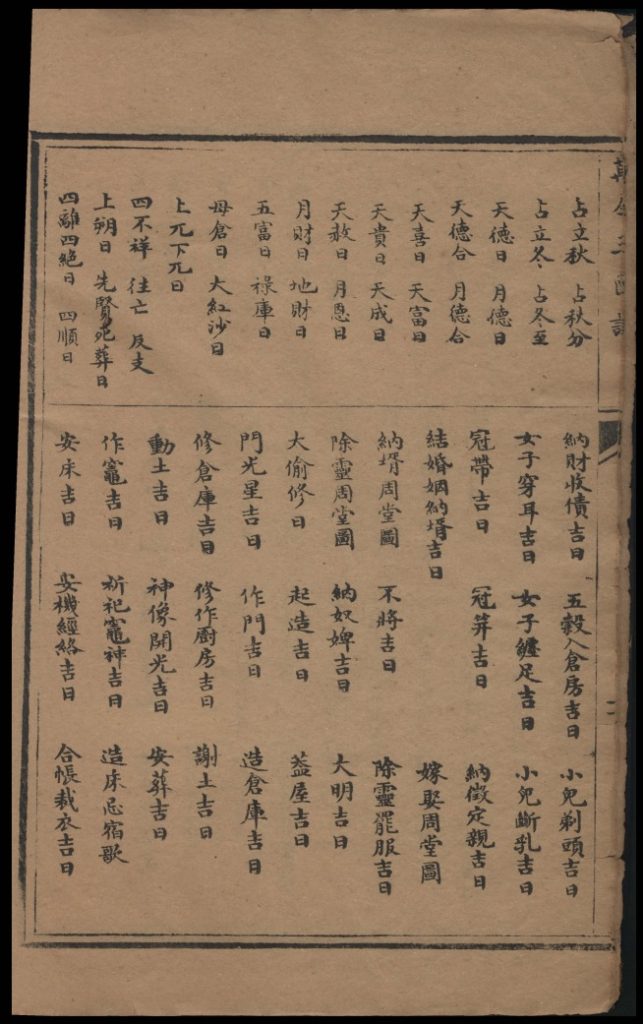 占立秋　占秋分
占立冬　占冬至
天德日　月德日
天德合　月德合
天喜日　天富日
天貴日　天成日
天赦日　月恩日
月財日　地財日
五富日　祿庫日
母倉日　大紅沙日
上兀下兀日
四不祥　往亡　反支
上朔日　先賢死葬日
四離四絕日　四順日
納財收債吉日　五穀入倉房吉日　小兒剃頭吉日
女子穿耳吉日　女子纏足吉日　小兒斷乳吉日
冠帶吉日　冠笄吉日　納徵定親吉日
結婚姻納壻吉日　嫁娶周堂圖
納壻周堂圖　不將吉日　除靈罷服吉日
除靈周堂圖　納奴婢吉日　大明吉日
大偷修日　起造吉日　蓋屋吉日
門光星吉日　作門吉日　造倉庫吉日
修倉庫吉日　修作廚房吉日　謝土吉日
動土吉日　神像開光吉日　安葬吉日
作竈吉日　祈祀竈神吉日　造床忌宿歌
安床吉日　安機經絡吉日　合帳裁衣吉日